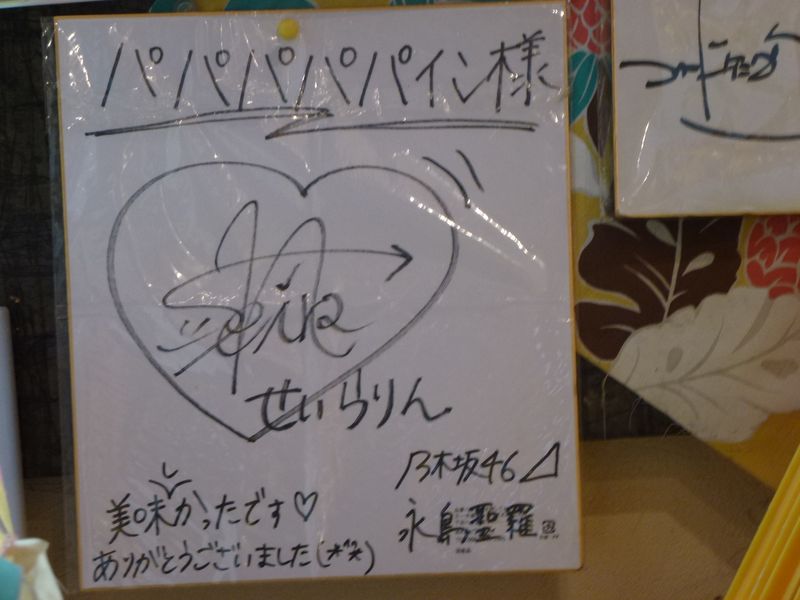 パパパパパイン様
せいらりん
乃木坂46
美味かったです♡
永島聖羅
ありがとうございました(*^^*)